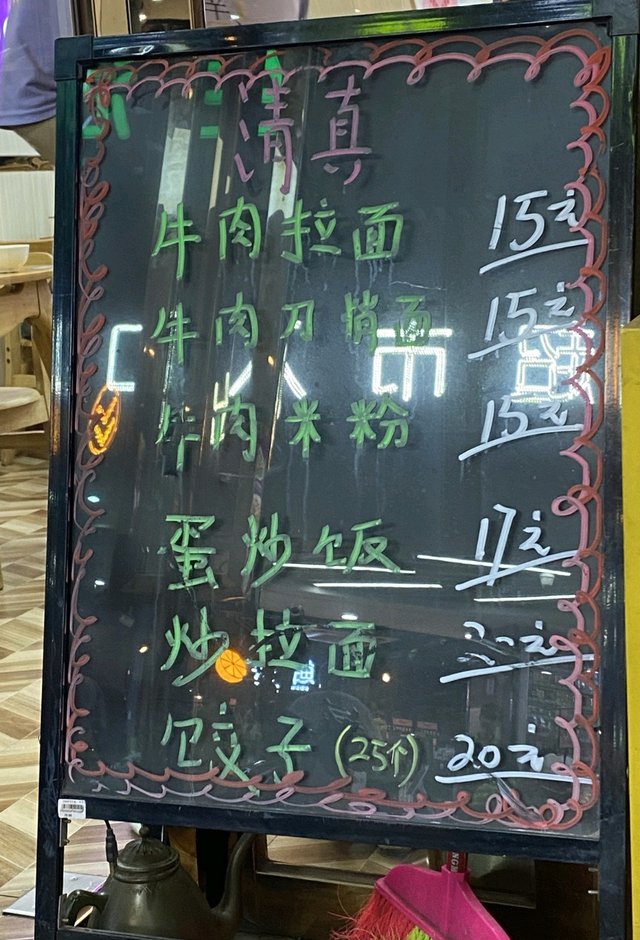 清真
牛肉拉面 15元
牛肉刀捎面 15元
牛肉米粉 15元
蛋炒饭 17元
炒拉面 20元
饺子(25个) 20元